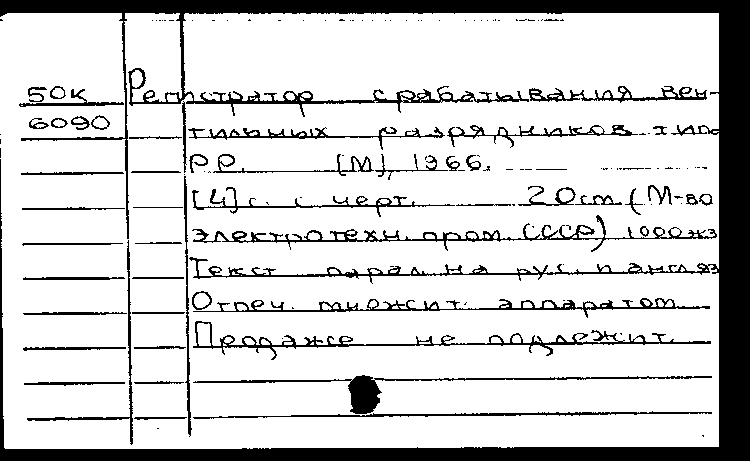 50К Регистратор срабатывания вен-
6090 тильных разрядников типа
РР. [М], 1966.
[4] с. с черт. 20 см (М-во
электротехн. пром. СССР) 1000 экз
Текст парал. на рус. и англ яз
Отпеч. множит. аппаратом
Продаже не подлежит.